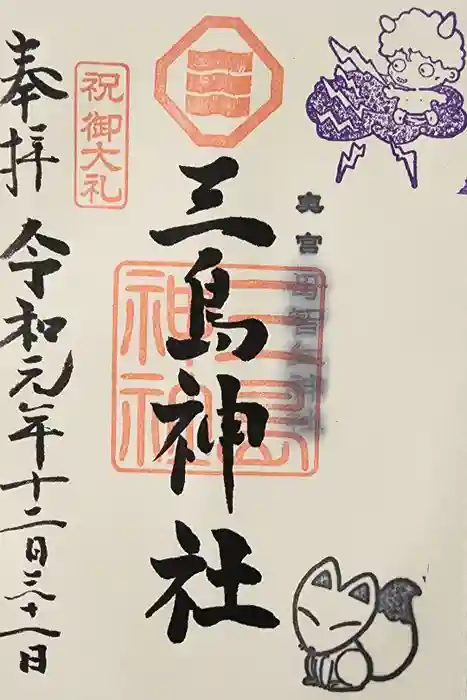 奉拝
令和元年十二月三十一日
祝御大礼
三島神社
三島神社